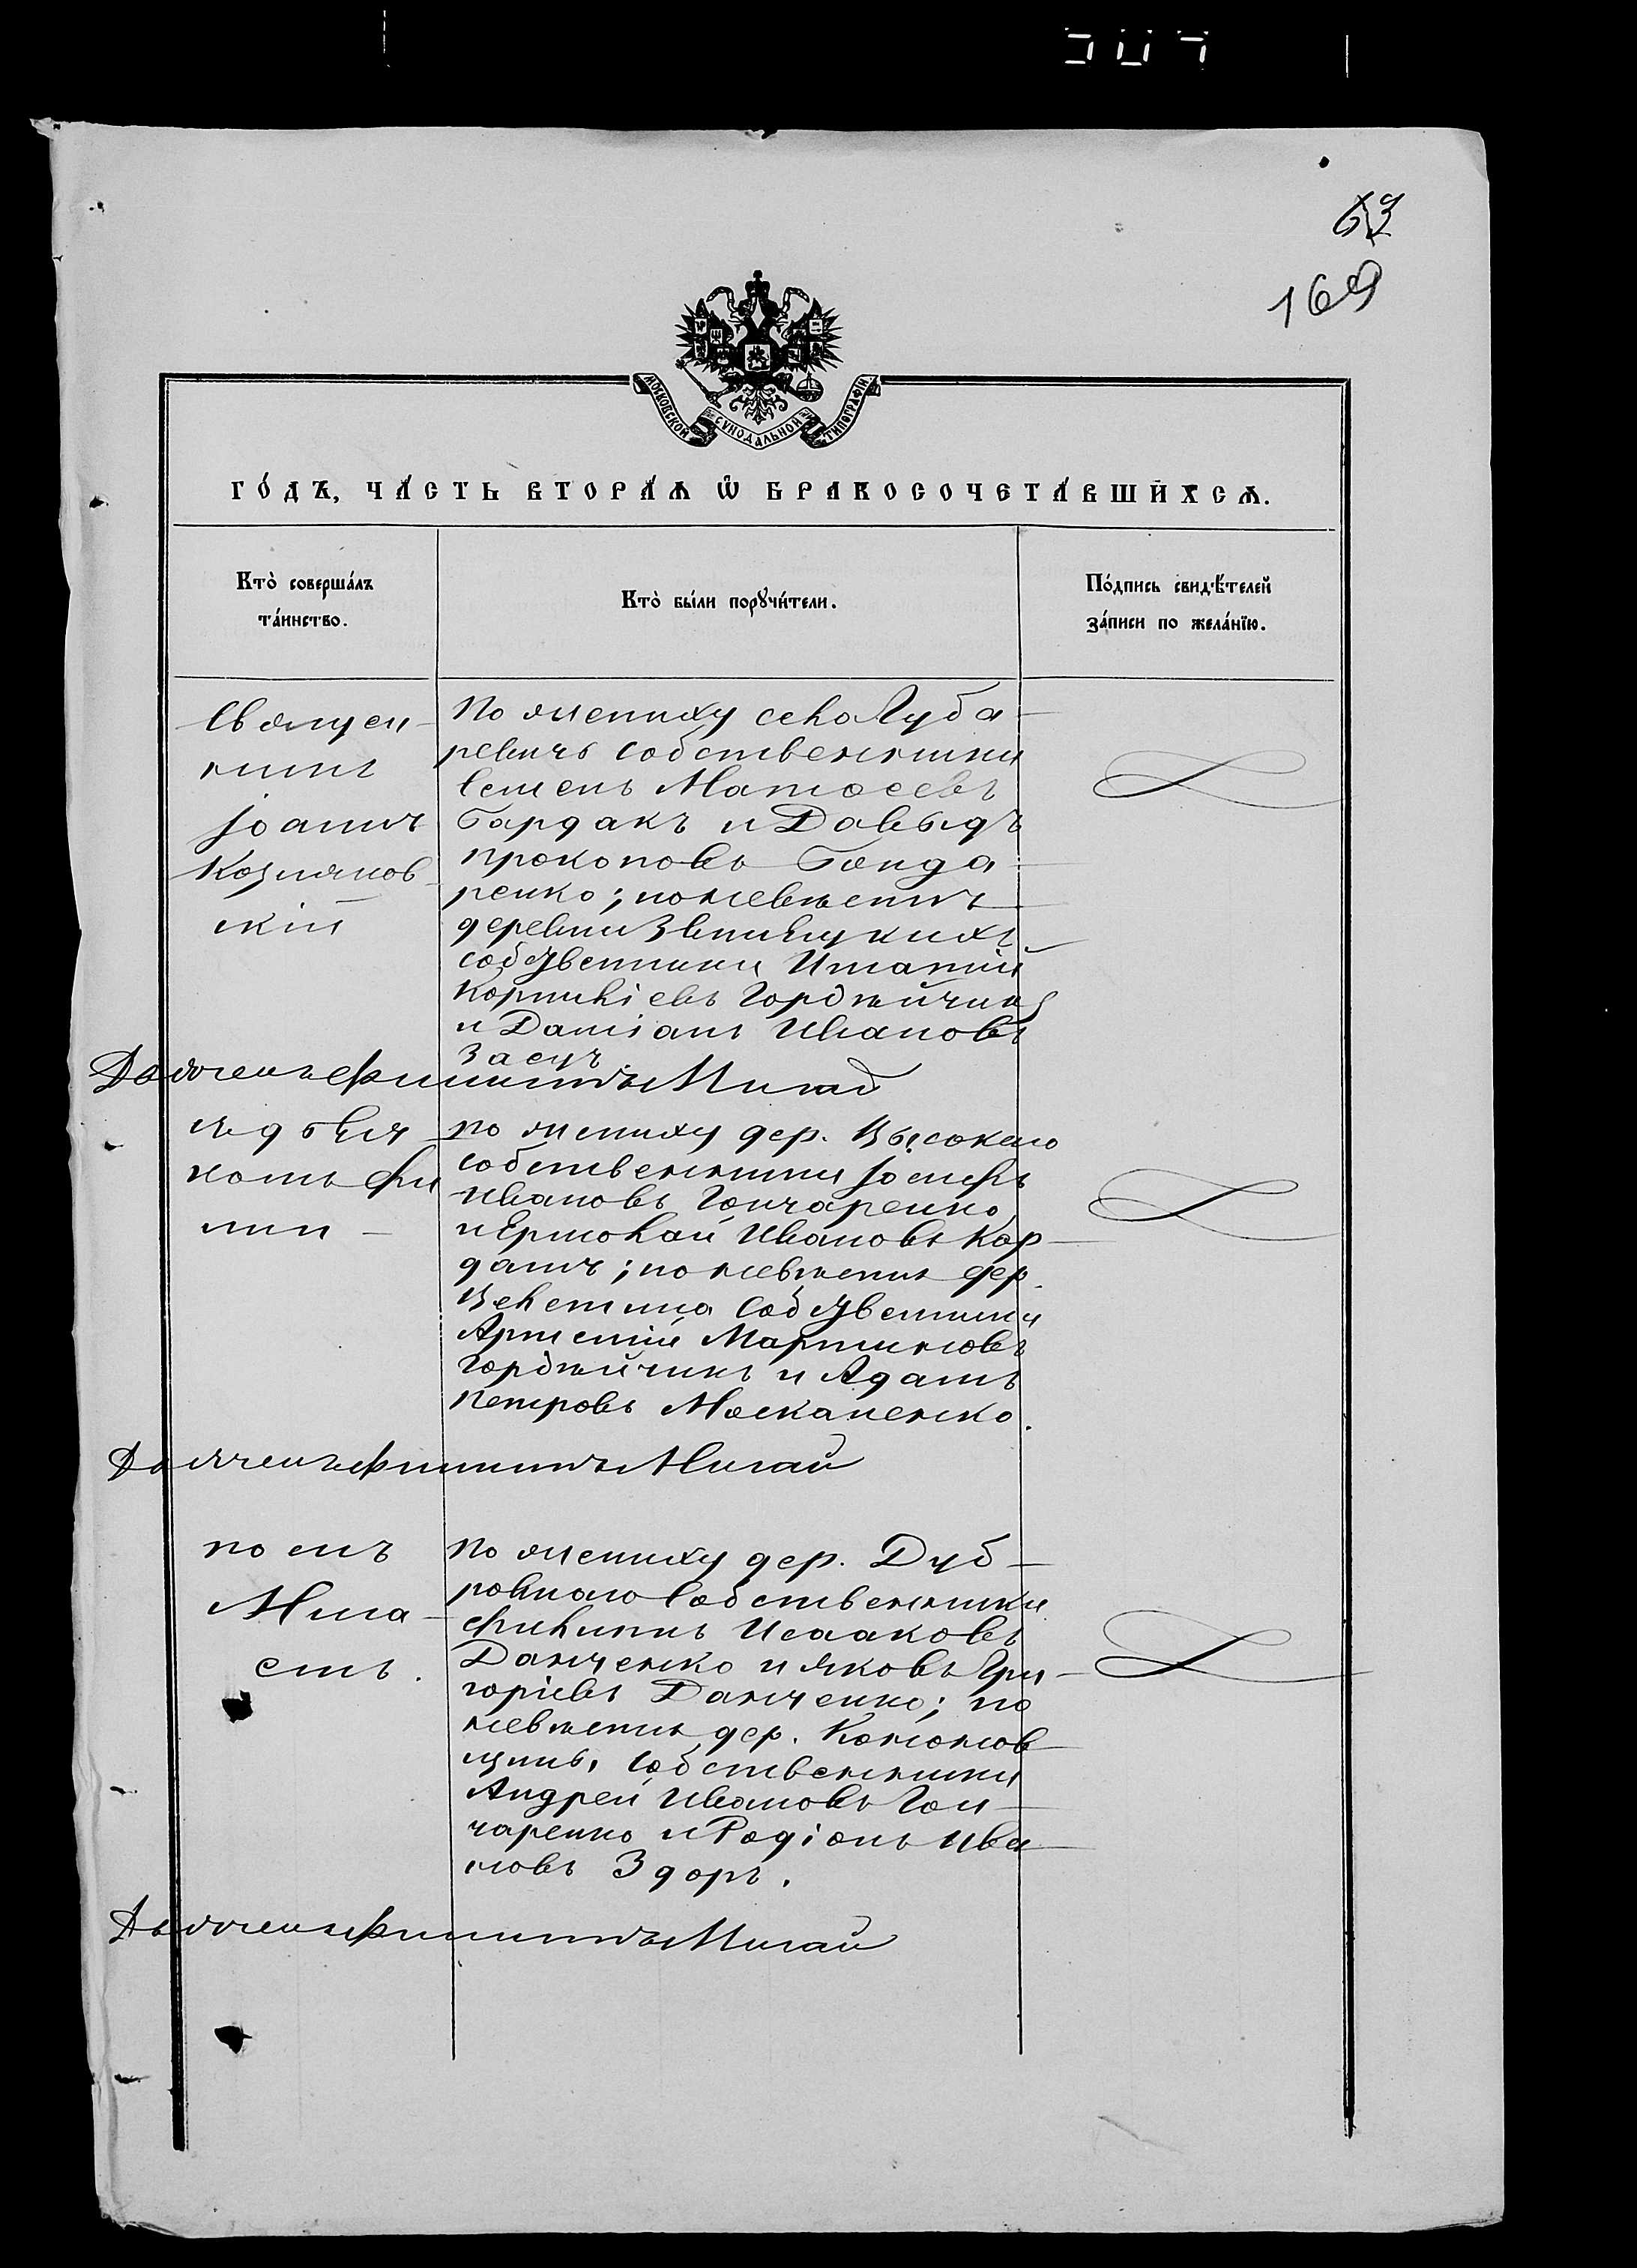 63
169
МОСКОВСКОЙ СѴНОДАЛЬНОЙ ТИПОГРАФІИ
ГО́ДЪ, ЧА́СТЬ ВТОРА́Ѧ Ѡ҆ БРАКОСОЧЕТА́ВШИХСѦ.
Кто̀ соверша́лъ
та́инство.
Кто̀ бы́ли порꙋчи́тели.
По́дпись свидѣ́телей
за́писи по жела́нїю.
Священ-
никъ
Іоаннъ
Козляков-
скій
По жениху села Губа-
ревичъ собственники
Семенъ Матѳеевъ
Бардакъ и Давыдъ
Прокоповъ Бонда-
ренко; по невѣстѣ
деревни
собственники Игнатій
Корниліевъ Гордѣйчикъ
и Даміанъ Ивановъ
Засуч
Дьячекъ Филиппъ Мигай
съ дьяч
комъ Фи
лип-
По жениху дер. Высокаго
собственники Іосифъ
Ивановъ Гончаренко
и Ермолай Ивановъ Кар-
дашъ; по невѣстѣ дер.
Велетина собственники
Арсеній Мартиновъ
Гордѣйчикъ и Адамъ
Петровъ Москаленко.
Дьячекъ Филиппъ Мигай
помъ
Мига-
емъ.
По жениху дер. Дуб-
ровнаго собственники
Филиппъ Исааковъ
Данченко и Яковъ Гри-
горіевъ Данченко; по
невѣстѣ дер. Кононов-
щины собственники
Андрей Ивановъ Гон-
чаренко и Родіонъ Ива-
новъ Здоръ.
Дьячекъ Филиппъ Мигай